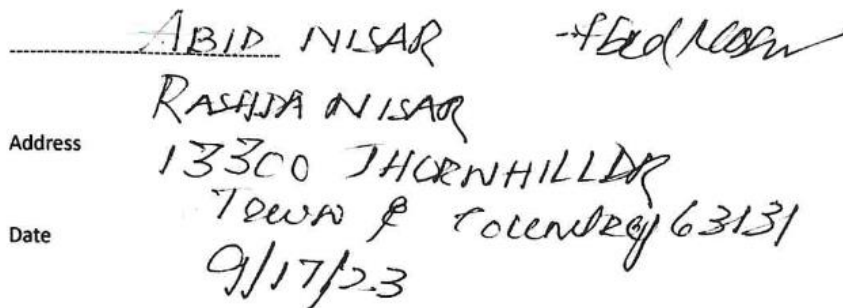 ABID NISAR
RASHDA NISAR
Address
13300 THORNHILL DR
Town & Country 63131
Date
9/17/23